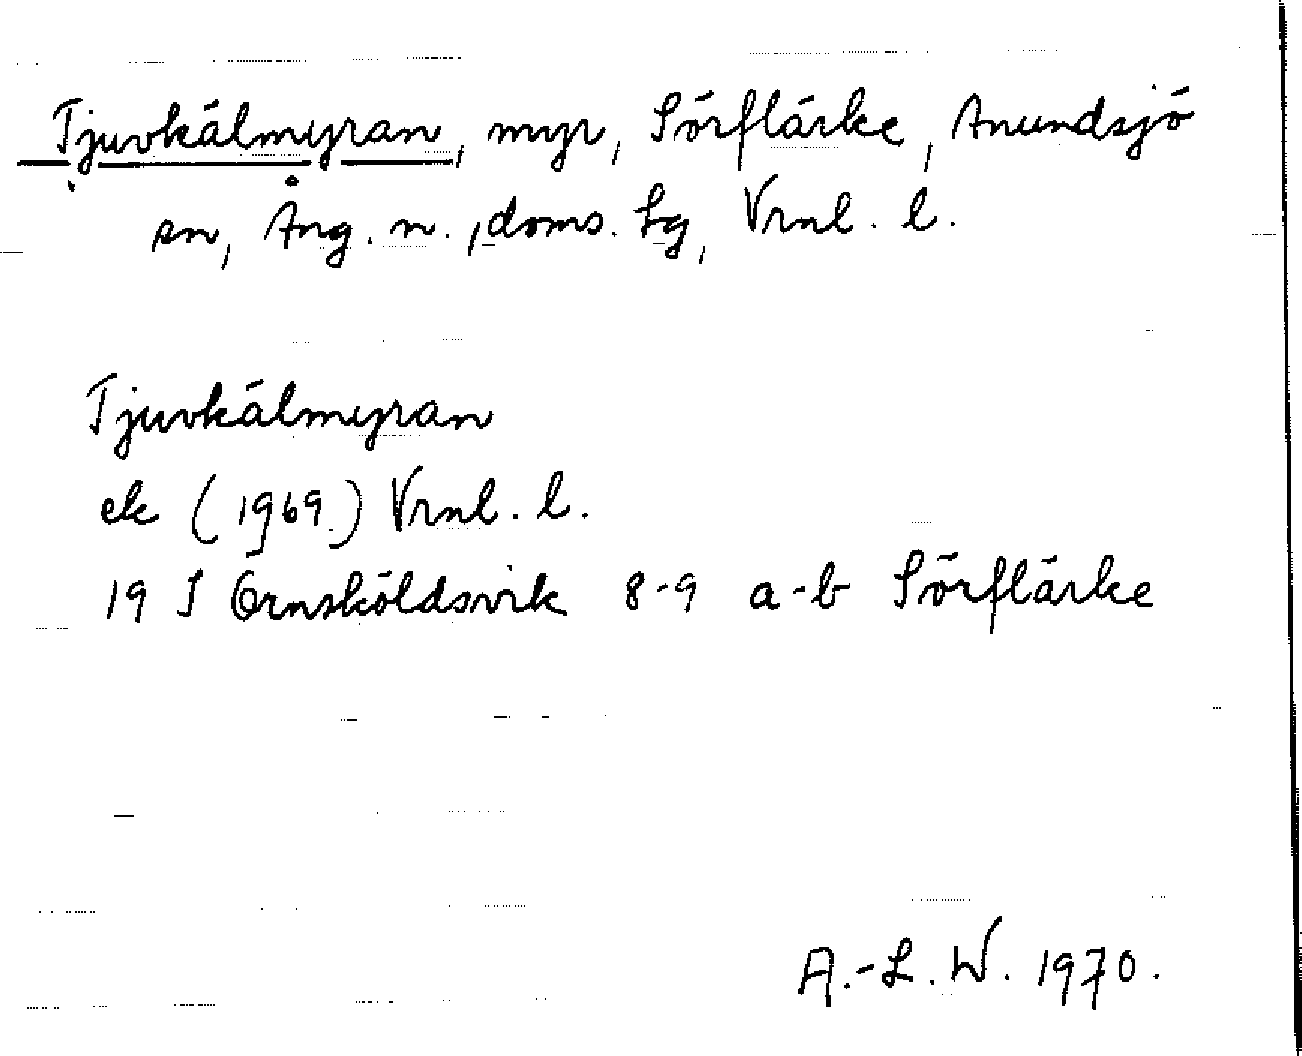 Tjuvkälmyran, myr, Sörflärke, Anundsjö
sn, Ång. n., doms. Lg, Vrnl. l.
Tjuvkälmyran
ek (1969) Vrnl. l.
19 I Örnsköldsvik 8-9 a-b Sörflärke
A.-L. W. 1970.